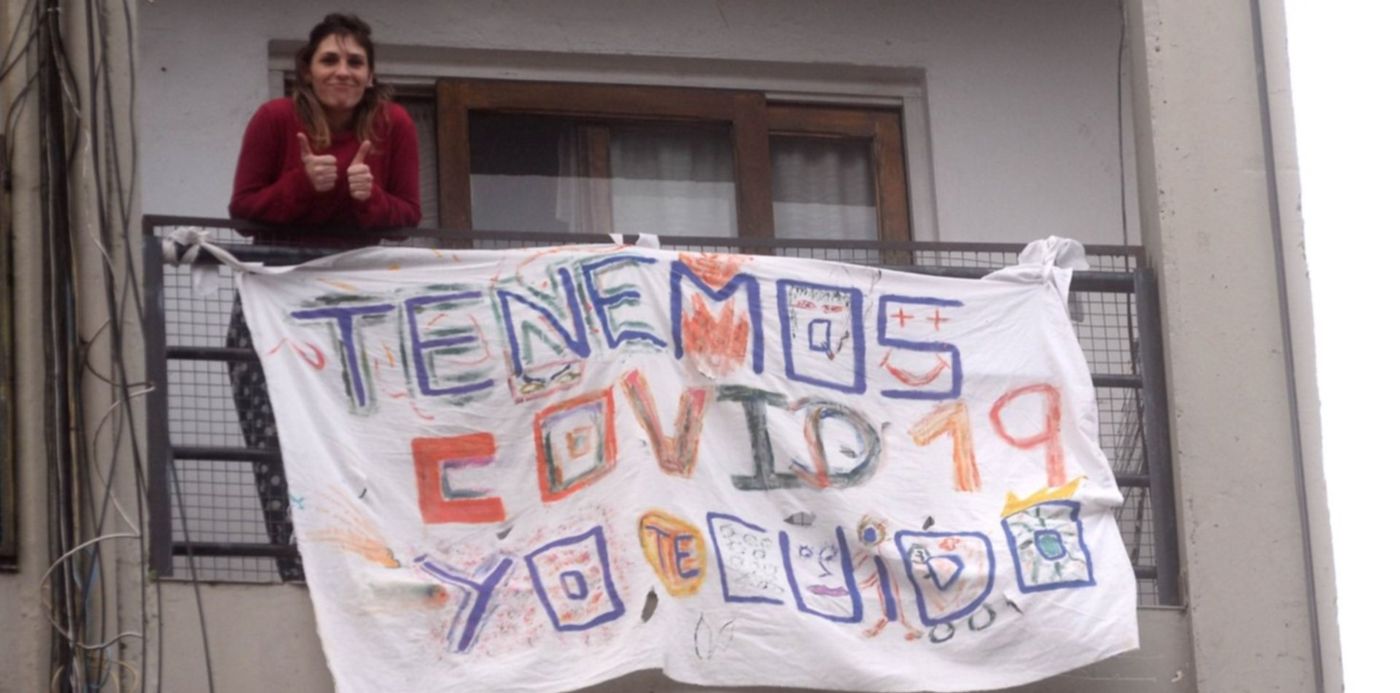 TENEMOS
COVID 19
YO TE CUIDO